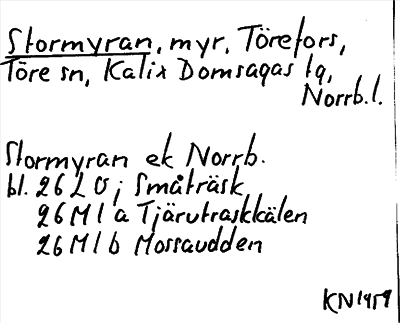 Stormyran, myr, Törefors,
Töre sn, Kalix Domsagas tg,
Norrb.l.
Stormyran ek Norrb.
bl. 26 L 0 j Småträsk
26 M 1 a Tjärutraskkälen
26 M 1 b Mossaudden
KN 1959